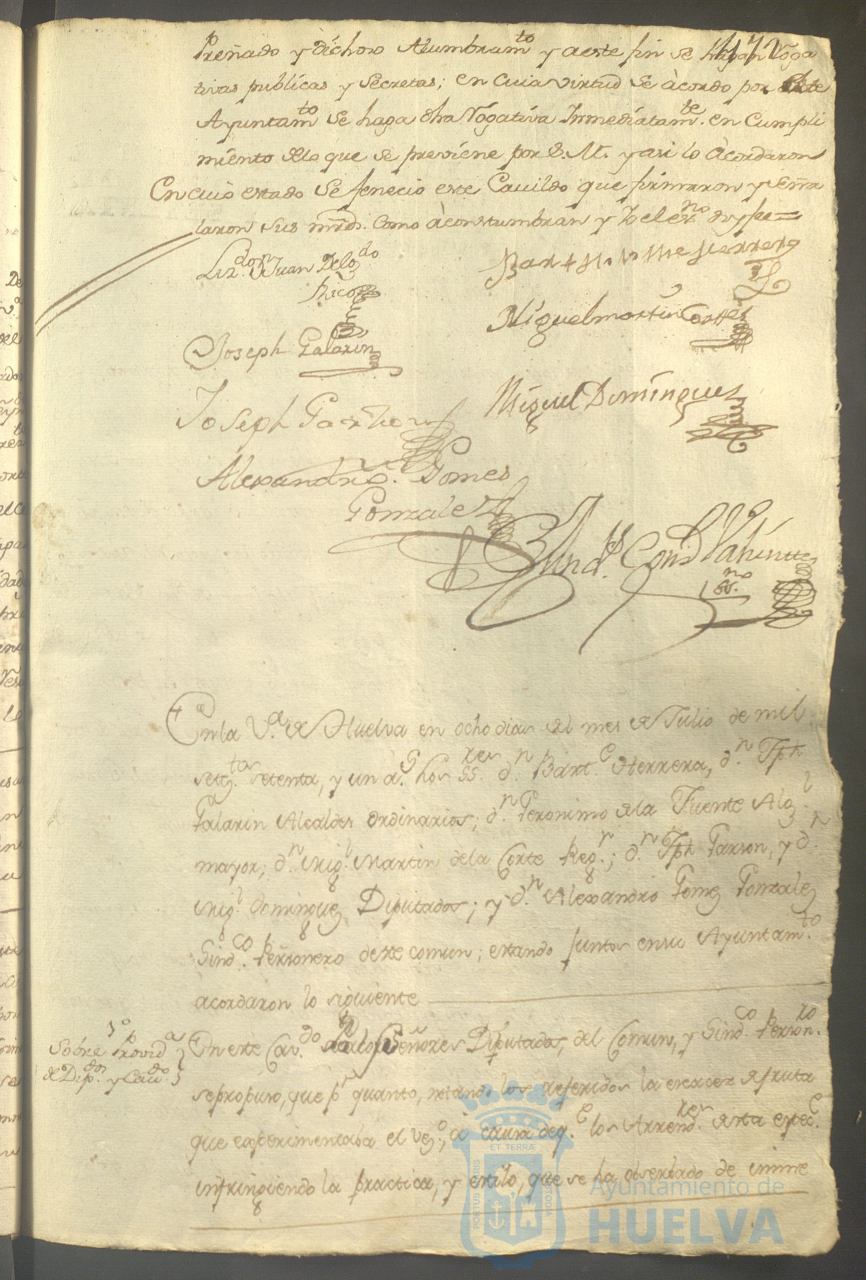 Preñado y dichoso Alumbram.to y a este fin se hagan Roga
tivas publicas y secretas; en cuia virtud se àcordo por este
Ayuntam.to se haga dha Rogativa Immediatam.te en Cumpli
miento de lo que se previene por S. M. y asi lo àcordaron
En cuio estado se fenecio este Cavildo que firmaron y señа
laron sus mrds. como àcostumbran y Yo el es.no doy fee=
Liz.do Dn Juan Delg.do
Rico
Bart.me Herrera
Miguel martin Cortes
Joseph Galarin
Joseph Garzon
Miguel Dominguez
Alexandro Gomes
Gonzalez
Cond Valiente
es.no
En la V.a de Huelva en ocho dias del mes de Julio de mil
setz.tos setenta, y un a.s los SS.res d.n Bart.e Herrera, d.n Jph
Galarin Alcaldes ordinarios; d.n Geronimo de la Fuente Alg.l
mayor; d.n Mig.l Martin de la Corte Reg.r; d.n Jph Garzon, y d.n
Mig.l Dominguez Diputados; y d.n Alexandro Gomez Gonzalez
Sind.co Personero deste comun; estando juntos en su Ayuntam.to
acordaron lo siguiente
Sobre Provid.a
de Dip.dos y Cav.do
En este Cav.do los Señores Diputados, del Comun, y Sind.co Person.ro
se propuso, que p.r quanto, notando los referidos la escacez de fruta
que experimentaba el vez.o, a causa de q.e los Arrend.res desta espec.e
infringiendo la practica, y estilo, que se ha observado de imme
PORTUS MARIS
ET TERRÆ
CUSTODIA
Ayuntamiento de
HUELVA